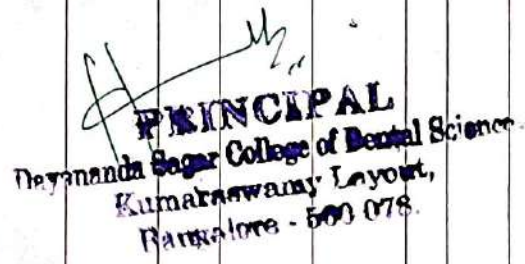 PRINCIPAL
Dayananda Sagar College of Dental Science.
Kumaraswamy Layout,
Bangalore - 560 078.